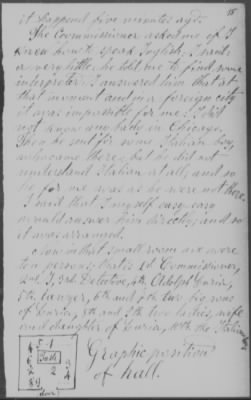 15
it happend five minutes ago.
The Commissioner asked me if I
know how to speak English. I said:
a very little. he told me to find some
interpreter. I answered him that at
that moment and in a foreign city
it was impossible for me. I did
not know anybody in Chicago.
Then he sent for some Italian boy,
who came there, but he did not
understand Italian at all, and so
he for me was as he were not there.
I said that I myself easy easy
would answer him directly, and so
it was arranged.
Now in that small room six were
ten persons; that is 1st Commissioner,
2nd. I, 3rd Detective, 4th Adolph
5th 6th and 7th two big sons
of 8th and 9th two ladies, wife
and daughter of 10th the Italian
Graphic position
of hall.
5 1
Table
2
8 9
(door)